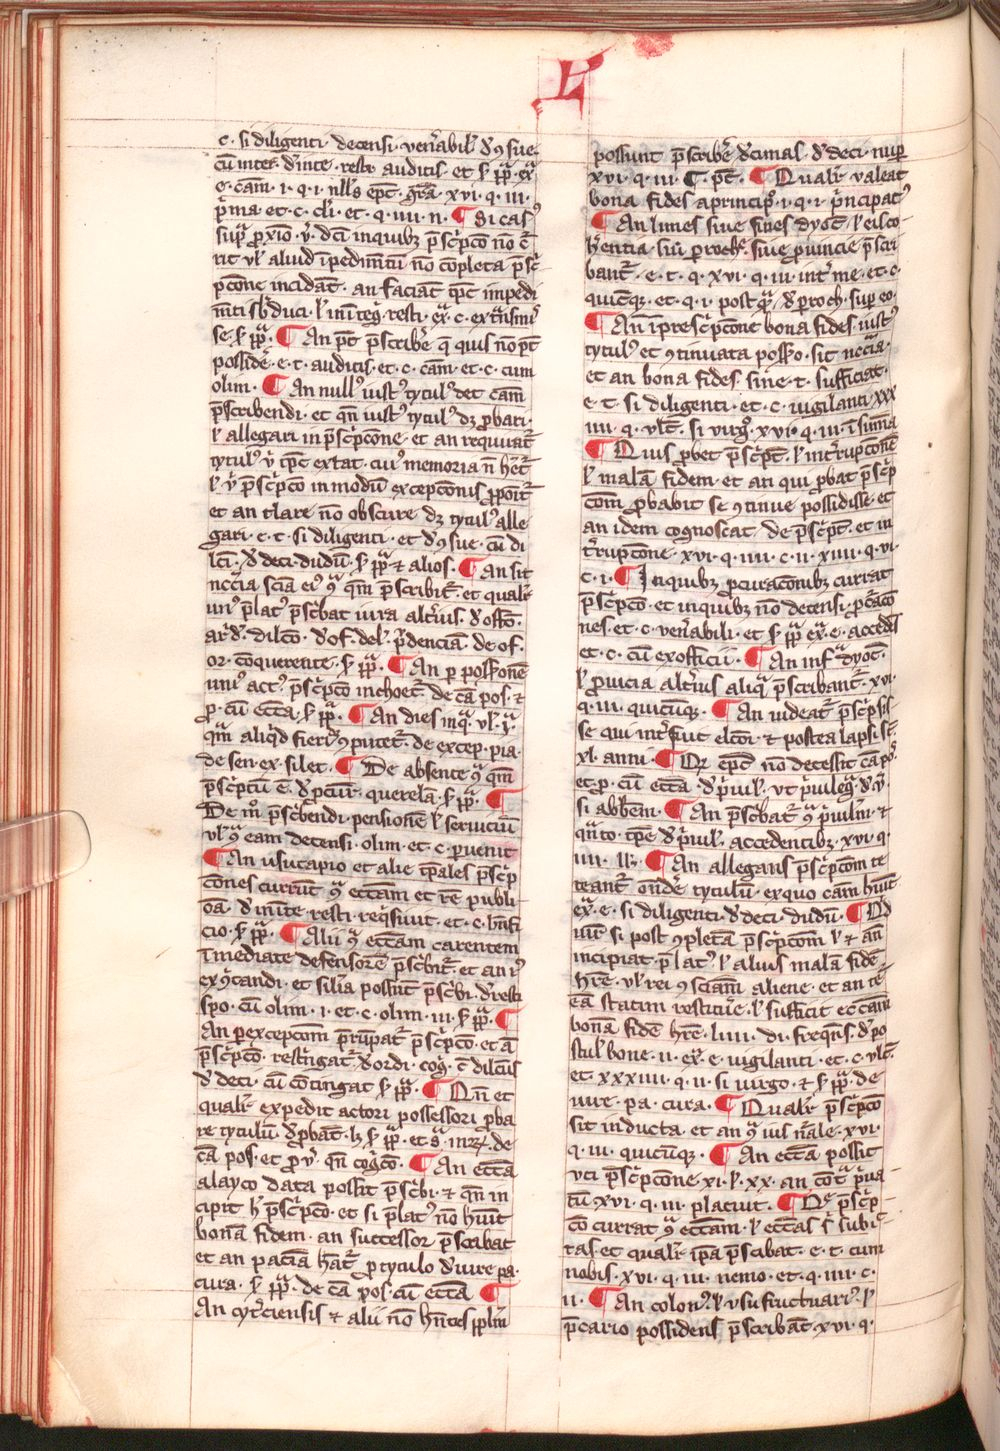 L
c. si diligenti decensi. ven̄abil̕ d̕ ꝯsue.
cū inter. d̕ inte. restr auditis et s̕ ꝑꝑ. ex̄
e. cam. i. q. i. nll̕s ep̄c. gr̄a. xvi. q. iii.
p̄ma. et. c. cl̕i. et. q. iiii. n. ¶ Si cas᷒
sup̄ ꝓxīo. v̕. d̄ci inquibꝫ p̄sc̕pco nō c̄
rit vl̕ aliud īpedim̄tū nō cōpleta p̄sc̕
pcone incidāt. an faciāt tp̄c impedi
m̄ti sb̕duci. l̕ in īteg̕. resti. ex̄. c. ex t̄nsmiſ
se. s̕ ꝑꝑ. ¶ An pt̄ p̄scribe̕ q̄ quis nō pt̄
possidē. e. t. auditis. et. c. cām. et. c. cum
olim. ¶ An null᷒ iust᷒ tytul᷒ det cām
p̄scribendi. et qn̄ iust᷒ tytul᷒ dꝫ ꝓbari.
l̕ allegari in p̄sc̕pcone. et an requirat̄
tytul᷒ v̕ tp̄c extat. cui᷒ memoria n̄ het̄
l̕ v̕ p̄sc̕pco in modū excepconis ꝓpoit̄
et an clare nō obscure dꝫ tytul᷒ alle
gari. e. t. si diligenti. et d̕ ꝯsue. cū di
lc̄i. d̕ deci. dudū. s̕ ꝑꝑ ⁊ alios. ¶ An sit
nc̄cīa scīa ei᷒ ꝯ̄ qm̄ p̄scribit̄. et qualr̕
uni᷒ p̄lat᷒ p̄sc̕bat iura alt̄ius. d̕ offo.
ar. d̕. dilco. d̕ of. del. p̄denciā. de of.
or. cōquerente. s̕ ꝑꝑ. ¶ An p possionē
uni᷒ act᷒ p̄sc̕pco inchoet̄. de cā pos. ⁊
ꝓ. cū ecc̄a. s̕ ꝑꝑ. ¶ An dies inq̄. vl̕ ꝯ̄.
qm̄ aliq̕d fieri᷒ ꝯputet̄. de excep. pia.
de sen. ex. silet. ¶ De absente ꝯ̄ qm̄
p̄sc̕ptū ē. d̕ ꝓcur. querelā. s̕ ꝑꝑ. ¶
De mō p̄sc̕bendi. pensionē l̕ seruiciū
vl̕ ꝯ̄ eam decensi. olim. et. c. ꝑuenit
¶ An usucapio et alie tp̄ales p̄sc̕p
cōnes currūt ꝯ̄ ecc̄am et rē publi
cā. d̕ inīte. resti. req̄siuit. et. c. bn̄fi
cio. s̕ ꝑꝑ. ¶ Alii ꝯ̄ ecc̄am carentem
īmediate defensorē p̄sc̕bit̄. et an i᷒
exꝯ̄candi. et silīa possūt p̄sc̕bi. d̕ resti
spo. cū olim. i. et. c. olim. iii. s̕ ꝑꝑ. ¶
An p excepcom p̄rūpat̄ p̄sc̕pco. et ā
p̄sc̕pco. restr̕igat̄. d̕ ordi. cog̕. c̄ dilcūs
d̕ deci. cū cōtingat s̕ ꝑꝑ. ¶ Qn̄ et
qualr̕ expedit actori possessori ꝓba
re tytulū. d̕ ꝓbat̄. lꝫ s̕ ꝑꝑ. et s̄. in rꝫ. de
cā pos. et ꝓ v̕. qn̄ cog̕co. ¶ An ecc̄a
a layco data possit p̄sc̕bi. ⁊ qn̄ in
cipit h̕ p̄sc̕pco. et si p̄lat᷒ nō huīt
bonā fidem. an successor p̄scribat
et an pacīa hāt̄ ꝓ tytulo d̕ iure pa.
cura. s̕ ꝑꝑ. de cā pos. cū ecc̄a ¶
An cyt̄ciensis ⁊ alii nō hn̄tes ꝓplm̄
possunt p̄scribē d̕cimas. d̕ deci. nuꝑ
xvi. q. iii. C. pt̄. ¶ Qualr̕ valeat
bona fides a principo᷒. i. q. i. p̄ncipat᷒
¶ An limes siue fines dyoc̄. l̕ ei co
h̕entia. siū ꝑroch̕. siue ꝓuincie p̄scri
bant̄. e. t. q. xvi. q. iii. int̄ me. et. c.
quicūqꝫ. et. q. i. post q̄. d̕ ꝑroch. sup̄ eo.
¶ An ī presc̕pcone bona fides. iust᷒
tytul᷒ et ꝯtinuata possō. sit nc̄cīa.
et an bona fides. sine. t. sufficiat.
e. t. si diligenti. et. c. uigilanti. xxx
iiii. q. vlt̄. si virgo᷒. xvi. q. iii. ī sūma
¶ Quis ꝓbet p̄sc̕pt̄. l̕ int̄rupcōnē
l̕ malā fidem. et an qui ꝓbat p̄sc̕p
com̄ ꝓbabit se ꝯtinue possidisse. et
an idem cognoscat de p̄sc̕pt̄. et in
t̄rupcōne. xvi. q. iiii. c. ii. xiiii. q. vi.
c. i. ¶ In quibꝫ ꝓcuraconibꝫ currat
p̄sc̕pco. et inquibꝫ nō decensi. ꝓc̄aco
nes. et. c. ven̄abili. et s̕ ꝑꝑ ex̄. e. accedēs
et. c. cū ex officii. ¶ An inf̄ dyoc̄.
l̕ ꝓuīcia alt̄ius aliq̄ p̄scribant̄. xvi.
q. iii. quicūqꝫ. ¶ An uideat̄ p̄sc̕psis
se qui int̄fuit elcoī. ⁊ postea lapsi st̄
xl. anni. ¶ Qꝛ ep̄c nō decessit. cā po᷒.
et ꝓ. cū ecc̄a. d̕ p̄iuil̕. ut p̄iuileg̕. d̕ v̕
si abb̄em. ¶ An p̄sc̕bat̄ ꝯ̄ p̄uilm̄. ⁊
q̄nto. tp̄e. d̕ p̄iuil̕. accedentibꝫ. xvi. q.
iiii. llꝫ. ¶ An allegans p̄sc̕pcom te
neant̄ ondē tytulū. ex quo cām huit
ex̄. e. si diligenti. d̕ deci. dudū. ¶ Qd̕
iur̄ si post ꝯpletā p̄sc̕pcom l̕ ⁊ an̄
incipiat p̄lat᷒. l̕ alius malā fidē.
hr̄e. vl̕ rei ꝯsciam aliene. et an te
eā statim restitue̕. l̕ sufficit ecc̄am
bonā fidē hr̄e. liiii. di. freqn̄s. d̕ po
stul. bone. ii. ex̄. e. uigilanti. et. c. vlt̄.
et. xxxiiii. q. ii. si uirgo. ⁊ s̕ ꝑꝑ. de
iure. pa. cura. ¶ Qualr̕ p̄sc̕pco
sit inducta. et an ꝯ̄ ius n̄ale. xvi.
q. iii. quicūqꝫ. ¶ An ecc̄a possit
uti p̄sc̕pcone xl. l̕. xx. an cōt̄ p̄ua
tū xvi. q. iii. placuit. ¶ Qr̄ p̄sc̕p
co currat ꝯ̄ ecc̄am. l̕ ecc̄as s̕ subi
tas. et qualr̕ ip̄a p̄scibat. e. t. cum
nobis. xvi. q. iii. nemo. et. q. iiii. c.
ii. ¶ An colon᷒. l̕ usufructuari᷒. l̕
p̄cario possidens p̄scribāt. xvi. q.